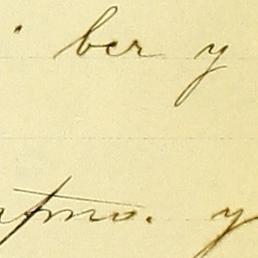 ber y
afmo. y